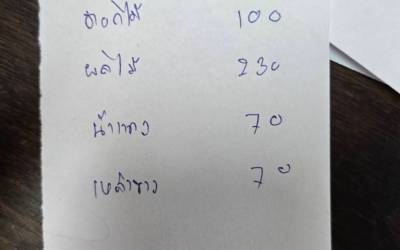 ดอกไม้ 100
ผลไม้ 230
น้ำแดง 70
เหล้าขาว 70